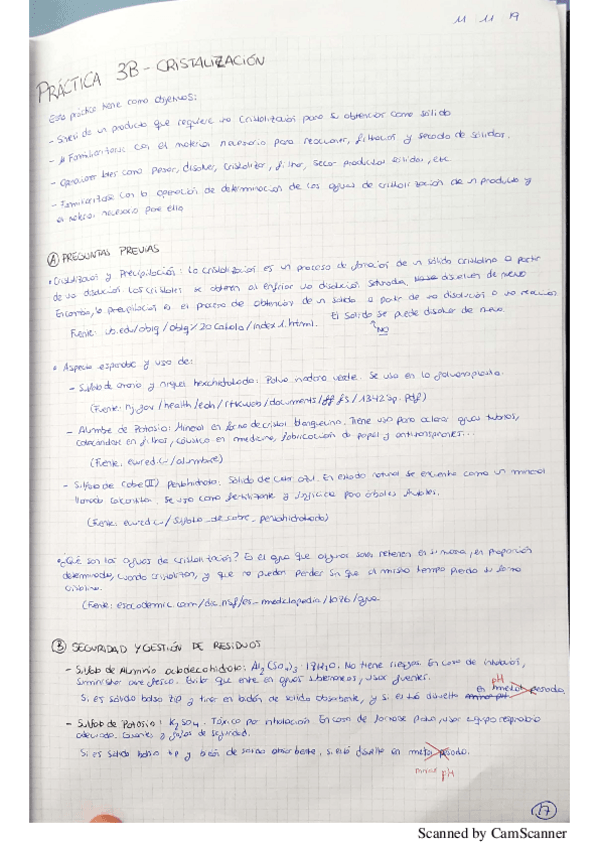 11 11 19
PRÁCTICA 3B - CRISTALIZACIÓN
Esta práctica tiene como objetivos:
- de un producto que requiere una cristalización para su obtención como sólido
- Familiarizarse con el material necesario para reaccionar, filtración y secado de sólidos.
- Operaciones tales como pesar, disolver, cristalizar, filtrar, secar productos sólidos, etc
- Familiarizarse con la operación de determinación de las aguas de cristalización de un producto y
el material necesario para ello
Ⓐ PREGUNTAS PREVIAS
• Cristalización y Precipitación: La cristalización es un proceso de formación de un sólido cristalino a partir
de una disolución. Los cristales se obtienen al enfriar una disolución saturada. disuelven de nuevo
En cambio, la precipitación es el proceso de obtención de un sólido a partir de una disolución o una reacción.
El sólido se puede disolver de nuevo.
NO
Fuente: ub.edu/oblq/oblq%20catala/index1.html.
• Aspecto esperable y uso de:
- Sulfato de amonio y níquel hexahidratado: Polvo verde. Se usa en la galvanoplastia.
(Fuente: nj.gov/health/eoh/rtkweb/documents/fs/1342sp.pdf)
- Alumbre de Potasio: Mineral en forma de cristal blanquecino. Tiene uso para aclarar aguas turbias,
colocándose en filtros, cáustico en medicina, fabricación de papel y antitranspirantes...
(Fuente: ecured.cu/alumbre)
- Sulfato de Cobre (II) Pentahidratado. Sólido de color azul. En estado natural se encuentra como un mineral
llamado calcantita. Se usa como fertilizante y fungicida para árboles frutales.
(Fuente: ecured.cu/Sulfato_de_cobre_pentahidratado)
• ¿Qué son las aguas de cristalización? Es el agua que algunas sales retienen en su masa, en proporción
determinada, cuando cristalizan, y que no pueden perder sin que al mismo tiempo pierda su forma
cristalina.
(Fuente: esacademic.com/dic.nsf/es_mediclopedia/1076/agua
Ⓑ SEGURIDAD Y GESTIÓN DE RESIDUOS
- Sulfato de Aluminio octodecahidrato: Al₂(SO₄)₃·18H₂O. No tiene riesgos. En caso de inhalación,
suministrar aire fresco. Evitar que entre en aguas subterráneas, usar guantes.
pH
Si es sólido bolsa zip y tirar en bidón de sólido absorbente, y si está disuelto en metal pesado.
- Sulfato de Potasio: K₂SO₄. Tóxico por inhalación. En caso de formarse polvo, usar equipo respiratorio
adecuado. Guantes y gafas de seguridad.
Si es sólido bolsa zip y bidón de sólido absorbente, si está disuelto en metal pesado.
pH
17
Scanned by CamScanner